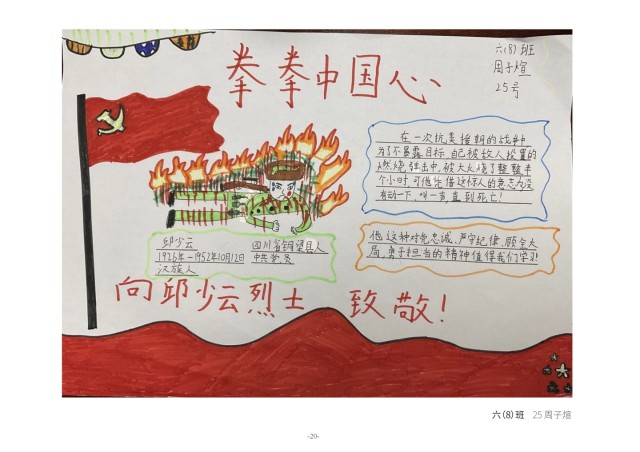 拳拳中国心
六(8)班
周子煊
25号
在一次抗美援朝的战争中
为了不暴露目标,自己被敌人投置的
燃烧弹击中,被大火烧了整整半
个小时,可他凭借这惊人的意志力没
有动一下,哼一声,直到死亡!
邱少云
四川省铜梁县人
1926年-1952年10月12日
中共党员
汉族人
他这种对党忠诚、严守纪律、顾全大
局、勇于担当的精神值得我们学习!
向邱少云烈士 致敬!
六(8)班 25周子煊
-20-